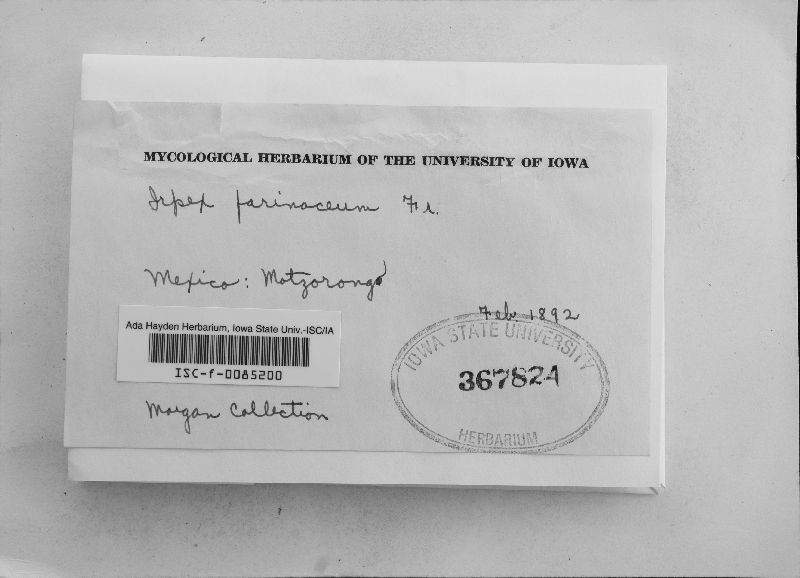 MYCOLOGICAL HERBARIUM OF THE UNIVERSITY OF IOWA
Irpex farinaceum Fr.
Mexico: Motzorongo
Feb. 1892
Ada Hayden Herbarium, Iowa State Univ.-ISC/IA
ISC-f-0085200
IOWA STATE UNIVERSITY
367824
HERBARIUM
Morgan Collection